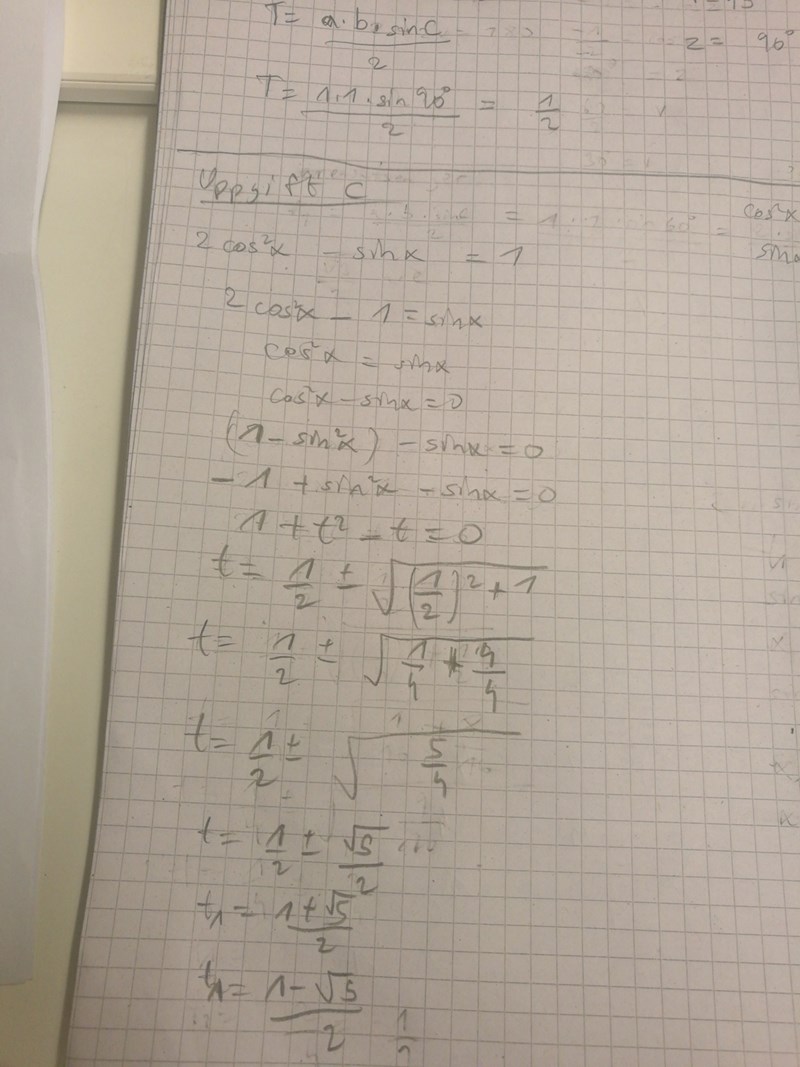 T = a·b·sinC / 2
z = 90°
T = 1·1·sin 90° / 2 = 1/2
Uppgift C
cos²x
2cos²x - sinx = 1
2cos²x - 1 = sinx
cos²x = sinx
cos²x - sinx = 0
(1 - sin²x) - sinx = 0
- 1 + sin²x - sinx = 0
1 + t² - t = 0
t = 1/2 ± √((1/2)² + 1)
t = 1/2 ± √(1/4 + 4/4)
t = 1/2 ± √(5/4)
t = 1/2 ± √5/2
t₁ = 1 + √5 / 2
t₁ = 1 - √5 / 2